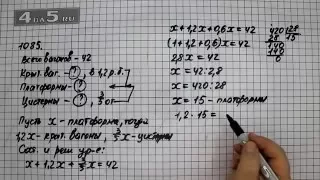 4на5.RU
1085.
Всего вагонов - 42
Крыт. ваг. - ?, в 1,2 р. б.
Платформы - ?
Цистерны - ?, 3/5 от
Пусть x - платформа, тогда
1,2x - крыт. вагоны, 3/5 x - цистерны
Сост. и реш. ур-е:
x + 1,2x + 3/5 x = 42
x + 1,2x + 0,6x = 42
(1 + 1,2 + 0,6)x = 42
2,8x = 42
x = 42 : 2,8
x = 420 : 28
x = 15 - платформы
1,2 · 15 =
420 28
28 15
140
140
0